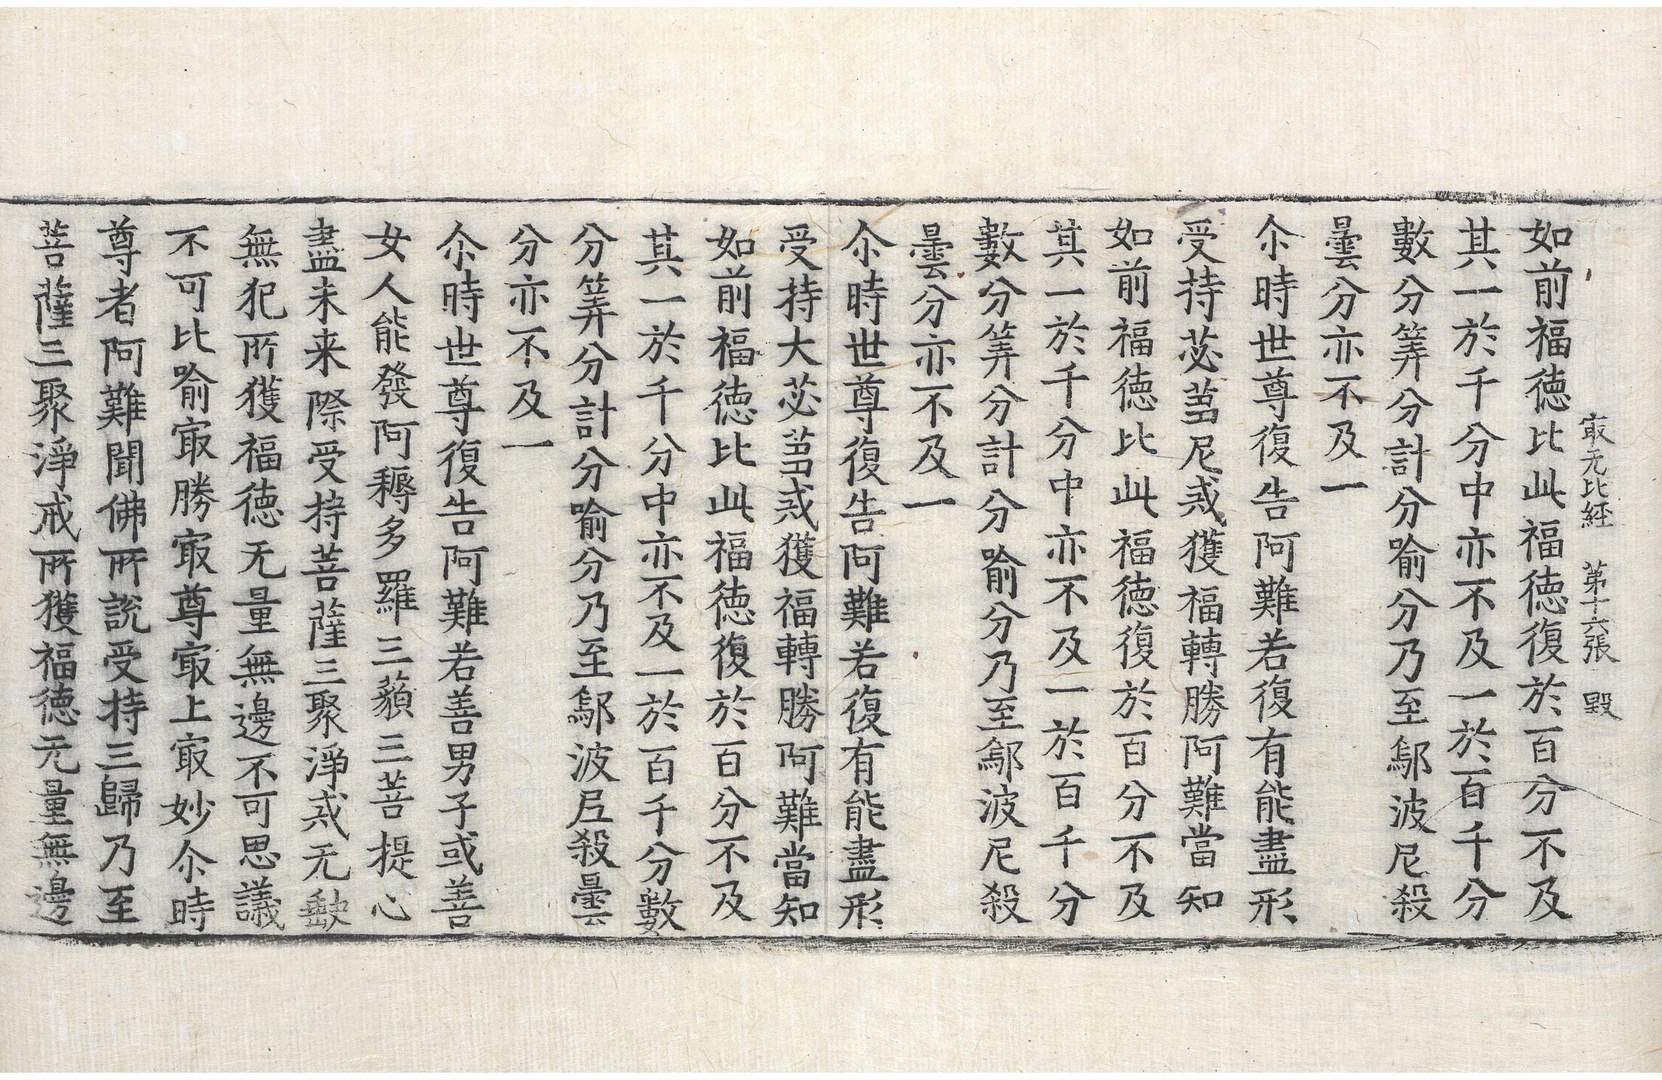 冣无比経　第十六張　毀
如前福徳比此福徳復於百分不及
其一於千分中亦不及一於百千分
數分筭分計分喻分乃至鄔波尼殺
曇分亦不及一
尒時世尊復告阿難若復有能盡形
受持苾蒭尼戒獲福轉勝阿難當知
如前福徳比此福徳復於百分不及
其一於千分中亦不及一於百千分
數分筭分計分喻分乃至鄔波尼殺
曇分亦不及一
尒時世尊復告阿難若復有能盡形
受持大苾蒭戒獲福轉勝阿難當知
如前福徳比此福徳復於百分不及
其一於千分中亦不及一於百千分數
分筭分計分喻分乃至鄔波尼殺曇
分亦不及一
尒時世尊復告阿難若善男子或善
女人能發阿耨多羅三藐三菩提心
盡未来際受持菩薩三聚淨戒无缺
無犯所獲福徳无量無邊不可思議
不可比喻冣勝冣尊冣上冣妙尒時
尊者阿難聞佛所說受持三歸乃至
菩薩三聚淨戒所獲福徳无量無邊